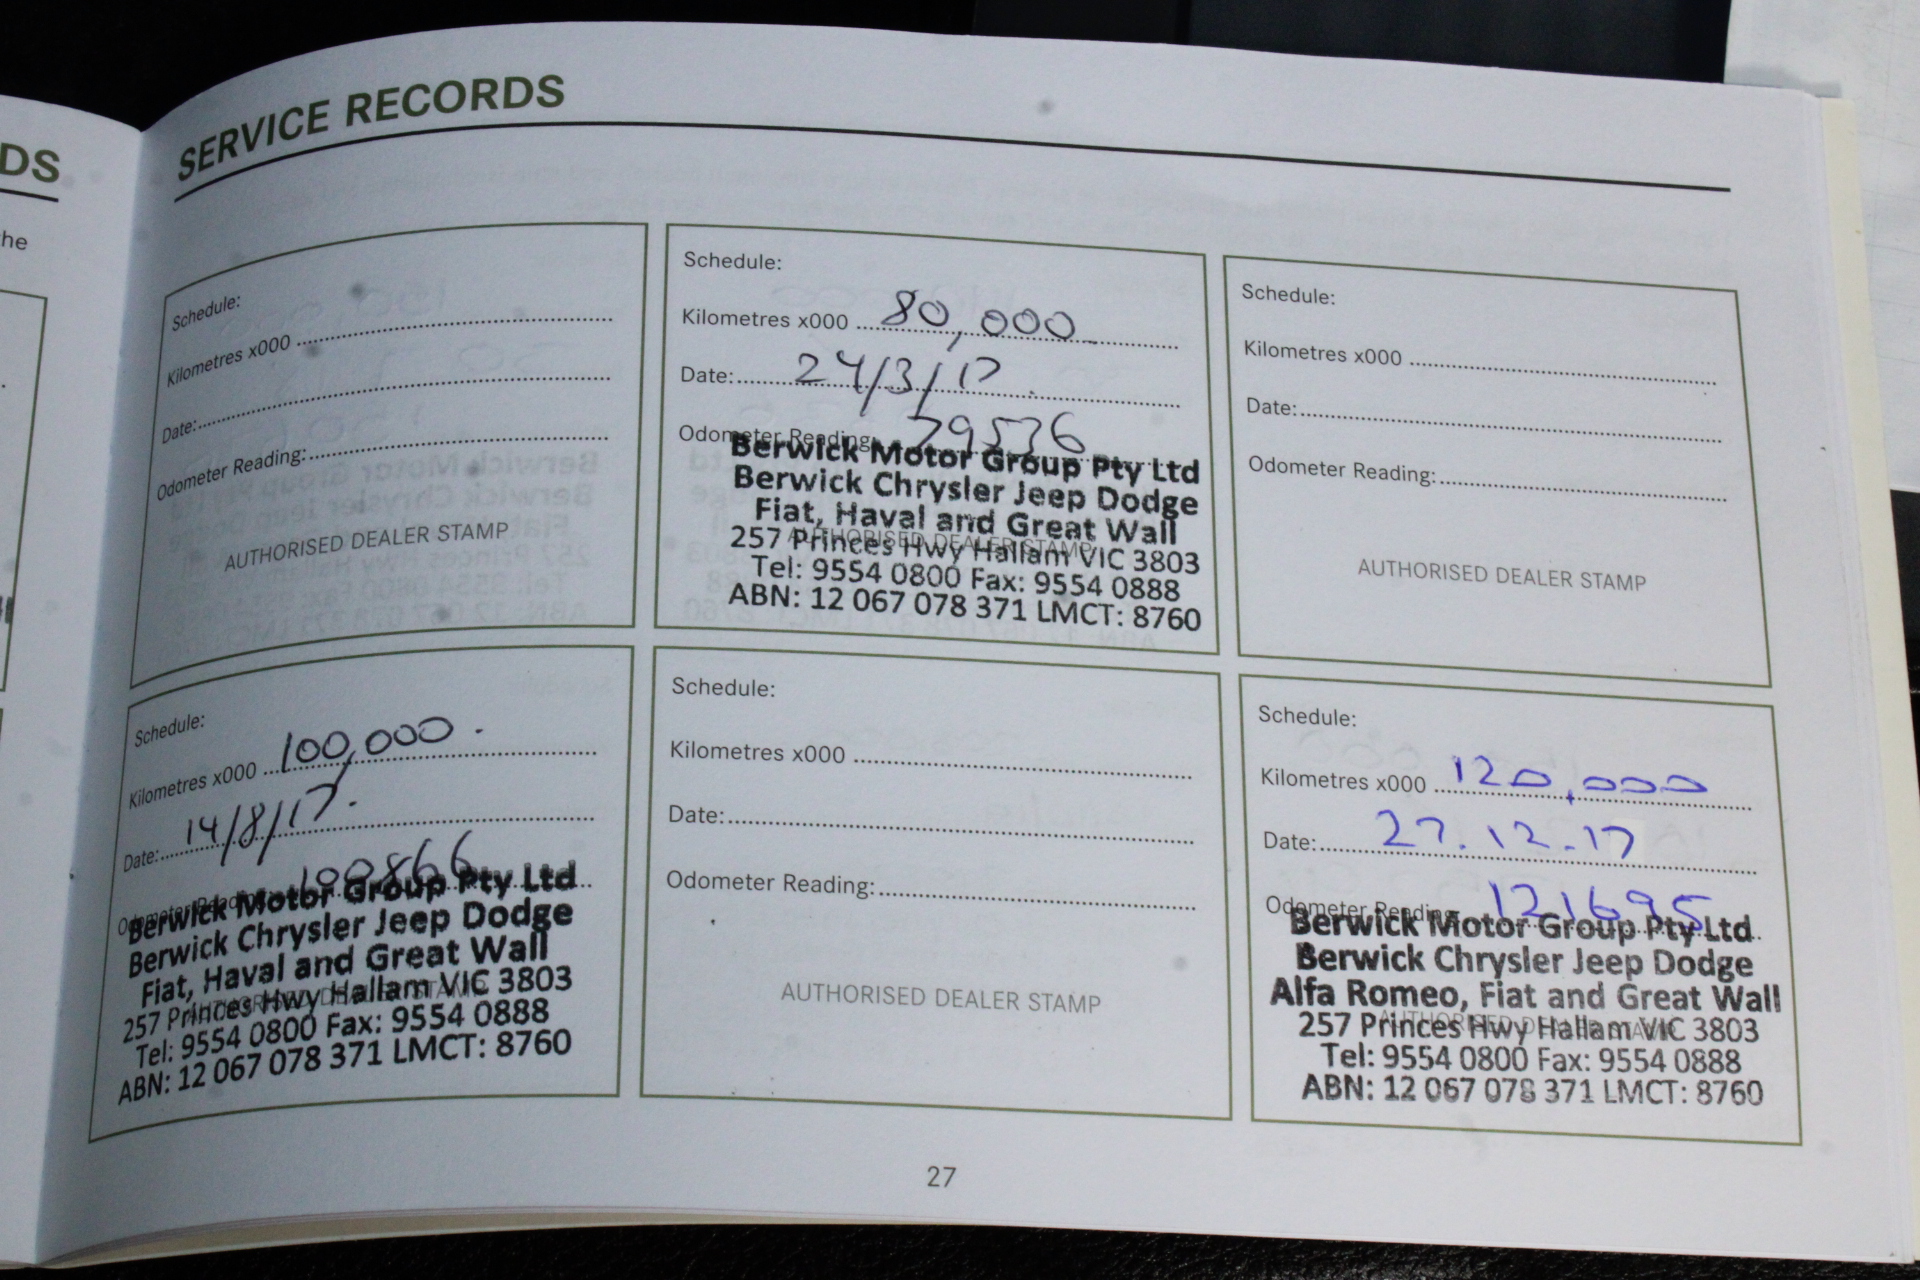 DS
he
SERVICE RECORDS
Schedule:
Kilometres x000
Date:
Odometer Reading:
AUTHORISED DEALER STAMP
Schedule:
Kilometres x000 80,000
Date: 24/3/17
Odometer Reading: 79536
Berwick Motor Group Pty Ltd
Berwick Chrysler Jeep Dodge
Fiat, Haval and Great Wall
AUTHORISED DEALER STAMP
257 Princes Hwy Hallam VIC 3803
Tel: 9554 0800 Fax: 9554 0888
ABN: 12 067 078 371 LMCT: 8760
Schedule:
Kilometres x000
Date:
Odometer Reading:
AUTHORISED DEALER STAMP
Schedule:
Kilometres x000 100,000
Date: 14/8/17
Odometer Reading: 100866
Berwick Motor Group Pty Ltd
Berwick Chrysler Jeep Dodge
Fiat, Haval and Great Wall
AUTHORISED DEALER STAMP
257 Princes Hwy Hallam VIC 3803
Tel: 9554 0800 Fax: 9554 0888
ABN: 12 067 078 371 LMCT: 8760
Schedule:
Kilometres x000
Date:
Odometer Reading:
AUTHORISED DEALER STAMP
Schedule:
Kilometres x000 120,000
Date: 27.12.17
Odometer Reading 121695
Berwick Motor Group Pty Ltd
Berwick Chrysler Jeep Dodge
Alfa Romeo, Fiat and Great Wall
AUTHORISED DEALER STAMP
257 Princes Hwy Hallam VIC 3803
Tel: 9554 0800 Fax: 9554 0888
ABN: 12 067 078 371 LMCT: 8760
27